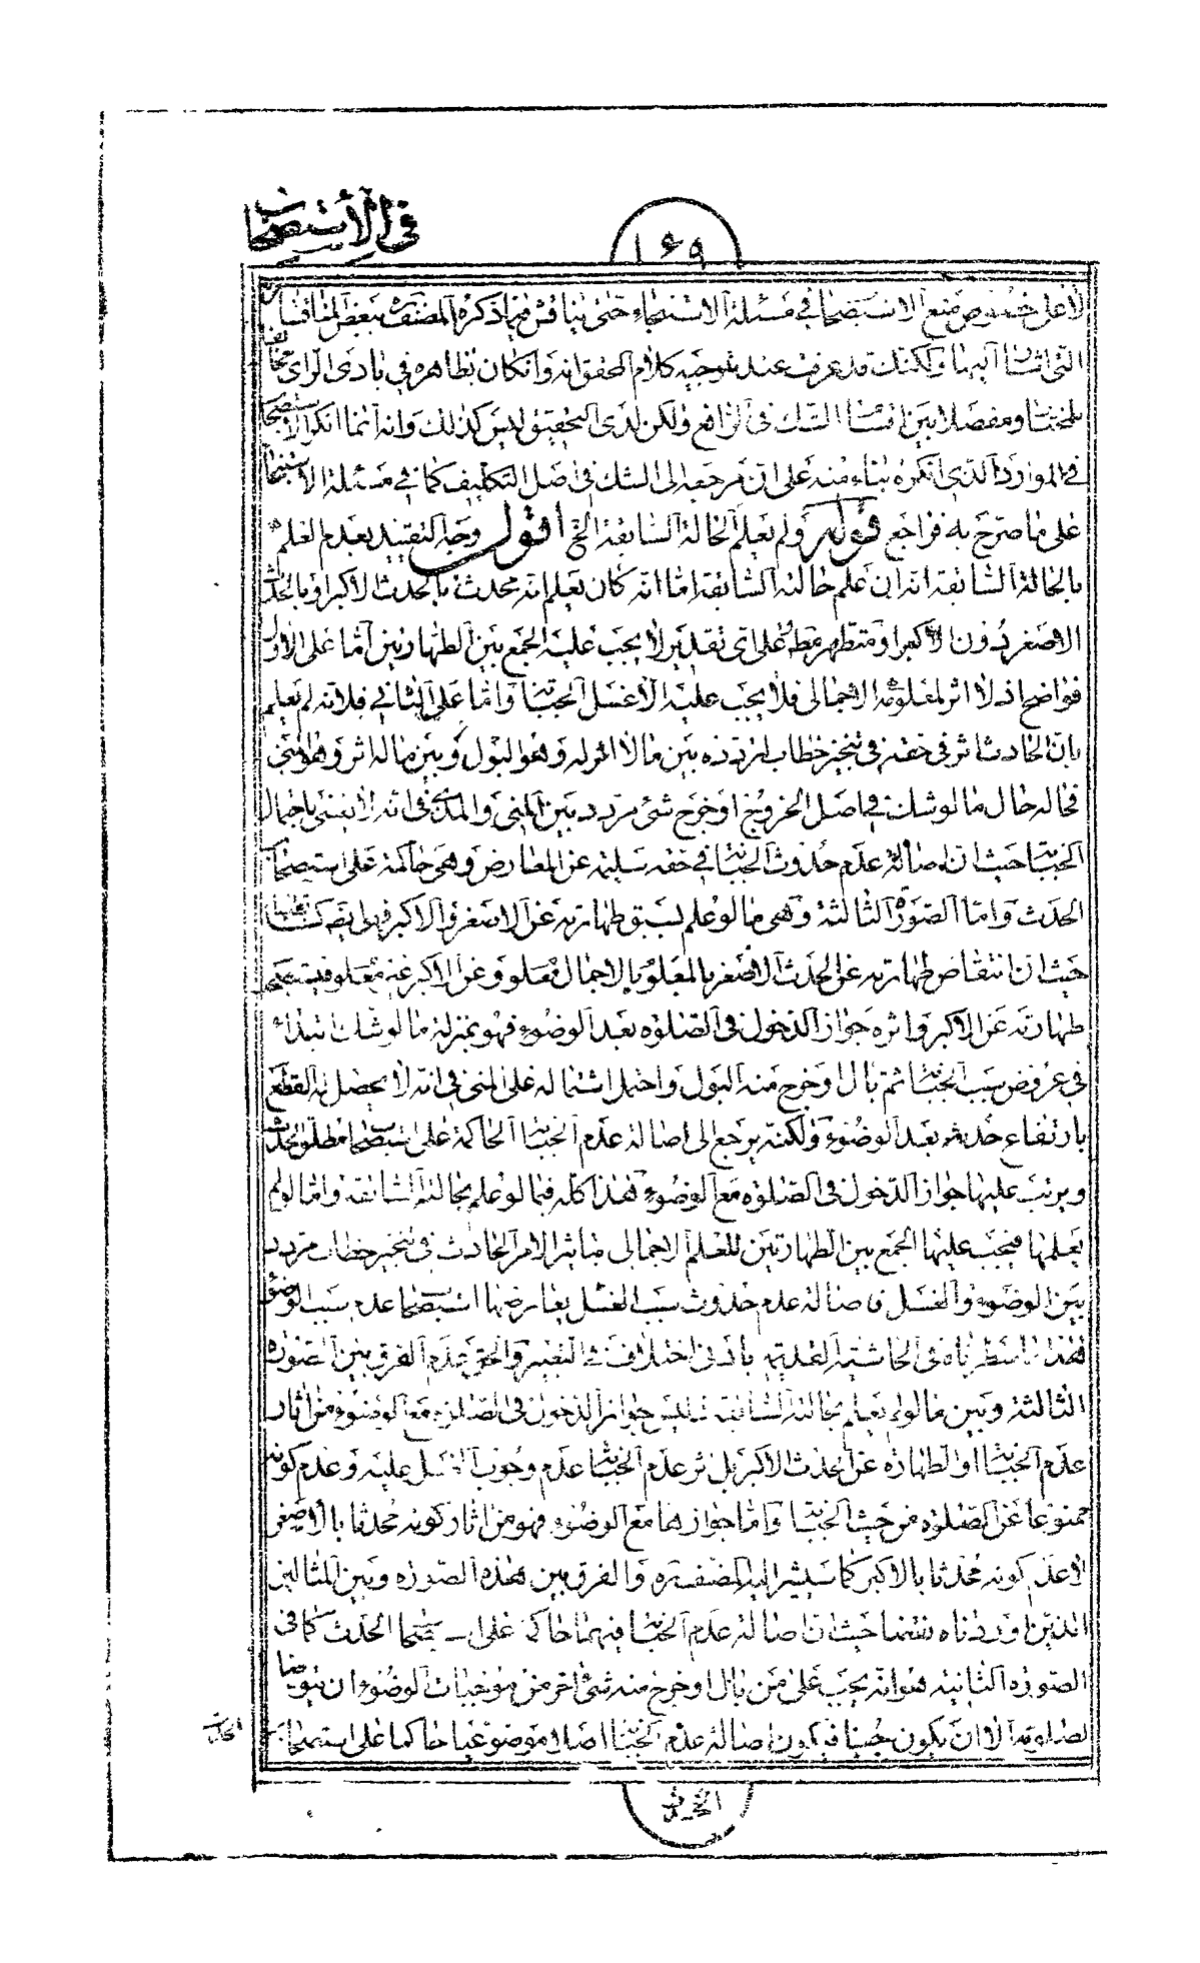 في الأستصحاب
١٦٩
لا على خصوص منع الاستصحاب في مسئلة الاستنجاء حتى يناقش فيما ذكره المصنف ره ببعض المناقشات
التي اشار اليها ولكنك قد عرفت عند توجيه كلام المحقق انه وان كان بظاهره في بادى الراى مخالفا
ومفصلا بين اقسام الشك في الرافع ولكن لدى التحقيق ليس كذلك وانه انما انكر الاستصحاب
في الموارد الذي انكره بناء منه على ان مرجعه الى الشك في اصل التكليف كما في مسئلة الاستنجاء
على ما صرح به فراجع قوله ولم يعلم الحالة السابقة الخ اقول وجه التقييد بعدم العلم
بالحالة السابقة انه ان علم حالته السابقة اما انه كان يعلم انه محدث بالحدث الاكبر او بالحدث
الاصغر دون الاكبر او متطهر مط على اى تقدير لا يجب عليه الجمع بين الطهارتين اما على الاول
فواضح اذ لا اثر لمعلومه الاجمالى فلا يجب عليه الا غسل الجنابة واما على الثاني فلانه لم يعلم
بان الحادث اثر في حقه في تنجيز خطاب لتردده بين ما لا اثر له وهو البول وبين ما له اثر وهو المنى
فحاله حال ما لو شك في اصل الخروج او خرج شئ مردد بين المنى والمذى في انه لا يعتنى باحتمال
الجنابة حيث ان اصالة عدم حدوث الجنابة في حقه سليمة عن المعارض وهى حاكمة على استصحاب
الحدث واما الصورة الثالثة وهى ما لو علم لسبق طهارته عن الاصغر والاكبر
حيث ان انتقاض طهارته عن الحدث الاصغر بالمعلوم بالاجمال معلوم وعن الاكبر غير معلوم فيستصحب
طهارته عن الاكبر واثره جواز الدخول في الصلوة بعد الوضوء فهو بمنزلة ما لو شك ابتداء
في عروض سبب الجنابة ثم بال او خرج منه البول واحتمل اشتماله على المنى في انه لا يحصل له القطع
بارتفاع حدثه بعد الوضوء ولكنه يرجع الى اصالة عدم الجنابة الحاكمة على استصحاب مطلق الحدث
ويرتب عليها جواز الدخول في الصلوة مع الوضوء هذا كله فيما لو علم بحالته السابقة واما لو لم
يعلمها فيجب عليها الجمع بين الطهارتين للعلم الاجمالى بتاثير الامر الحادث في تنجيز خطاب مردد
بين الوضوء والغسل فاصالة عدم حدوث سبب الغسل يعارضها استصحاب عدم سبب الوضوء
هذا ما سطرناه في الحاشية القديمة بادنى اختلاف في التعبير والحق عدم الفرق بين الصورة
الثالثة وبين ما لو لم يعلم بحالته السابقة فليس جواز الدخول في الصلوة مع الوضوء من اثار
عدم الجنابة او الطهارة عن الحدث الاكبر بل اثر عدم الجنابة عدم وجوب الغسل عليه وعدم كونه
ممنوعا عن الصلوة من حيث الجنابة واما جوازها مع الوضوء فهو من اثار كونه محدثا بالاصغر
لا عدم كونه محدثا بالاكبر كما سيشير اليه المصنف ره والفرق بين هذه الصورة وبين المثالين
الذين اوردناه نقضا حيث ان اصالة عدم الجنابة فيهما حاكمة على استصحاب الحدث كما في
الصورة الثانية هو انه يجب على من بال او خرج منه شئ اخر من موجبات الوضوء ان يتوضا
لصلوته الا ان يكون جنبا فيكون اصالة عدم الجنابة اصلا موضوعيا حاكما على استصحاب
الحدث
الحدث